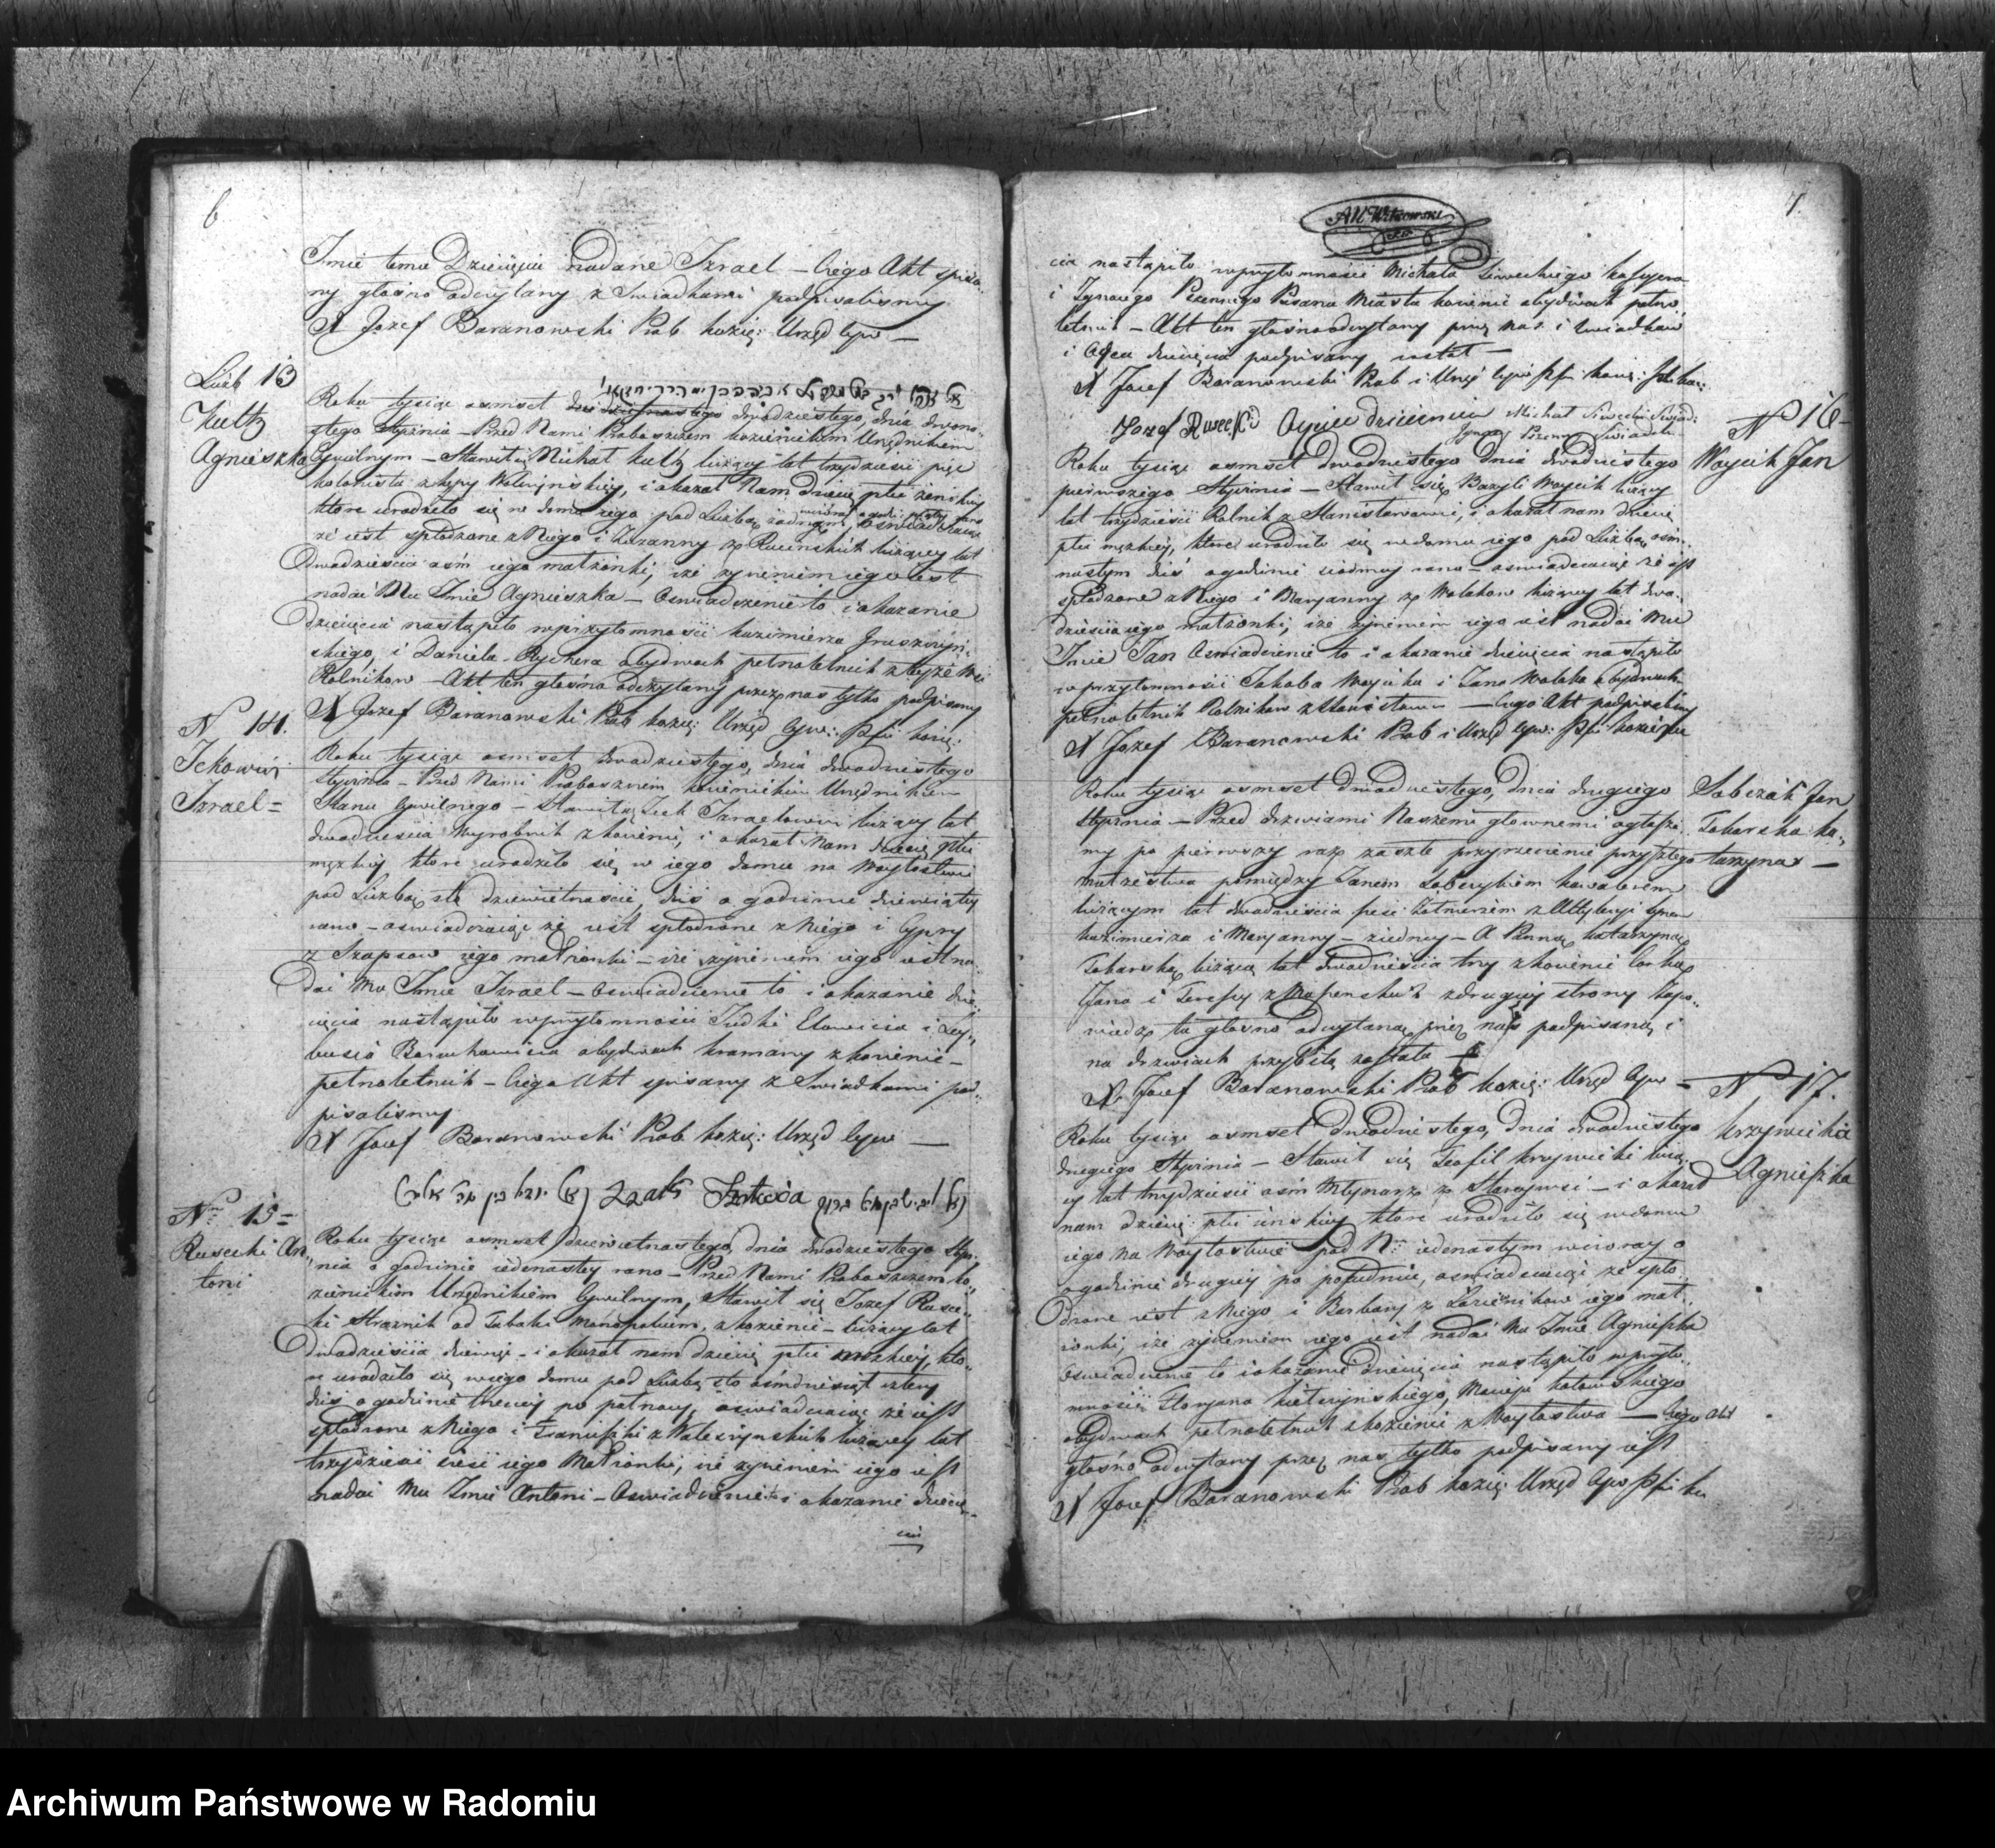 6
Imie temu Dziecięciu nadane Izrael – Czego Akt spisa-
ny głośno odczytany z Swiadkami podpisalismy
X Jozef Baranowski Prob. kozie: Urzęd Cyw –
Licb 13
Kultz
Agnieszka
Roku tysiąc osmset dwudziestego, dnia dwuna-
stego Stycznia – Przed Nami Proboszczem kozienickim Urzędnikiem
Cywilnym – Stawił się Michał Kultz liczący lat trzydziesci pięc
kolonista z kępy Wolczynskiey, i okazał Nam dziecie płci żenskiey
ktore urodziło się w domu iego pod Liczbą żadnym, oswiadczaiąc
że iest spłodzone z Niego i Zuzanny z Rucinskich liczącey lat
Dwadzieścia ośm iego małżonki, iże życzeniem iego iest
nadać Mu Imie Agnieszka – Oswiadczenie to i okazanie
Dziecięcia nastąpiło w przytomności kazimierza Gruszczyń-
skiego, i Daniela Rychera obydwoch pełnoletnich z teyże Wsi
Rolnikow – Akt ten głośno odczytany przez nas tylko podpisany
X Jozef Baranowski Prob. kozie: Urzęd Cyw: Pfii kozie:
N 14.
Ickowicz
Izrael =
Roku tysiąc osmset dwudziestego, dnia dwudziestego
Stycznia – Przed Nami Proboszczem kozienickim Urzędnikiem
Stanu Cywilnego – Stawił się Icek Izraelowicz liczący lat
dwadzieścia Wyrobnik z kozienic, i okazał Nam dziecię płci
męzkiey ktore urodziło się w iego domu na Woytostwie
pod Liczbą sto dziewietnascie, dziś o godzinie dziewiątey
rano – oswiadczaiąc że iest spłodzone z Niego i Cypry
z Szapsow iego małżonki – iże życzeniem iego iest na-
dać Mu Imie Izrael – Oswiadczenie to i okazanie dzie-
cięcia nastąpiło w przytomności Judki Elowicza i Ley-
busia Boruchowicza obydwoch kramarzy z kozienic –
pełnoletnich – Czego Akt spisany z Swiadkami pod-
pisalismy
X Jozef Baranowski Prob. kozie: Urzęd Cyw –
N 15 =
Rusecki An-
toni
Roku tysiąc osmset dziewietnastego, dnia dwudziestego Stycz-
nia o godzinie iedenastey rano – Przed Nami Proboszczem ko-
zienickim Urzędnikiem Cywilnym, Stawił się Jozef Rusec-
ki Straznik od Tabaki Monopolium, z kozienic – liczący lat
Dwadzieścia dziewięc – i okazał nam dziecię płci męzkiey, kto-
re urodziło się w iego domu pod Liczbą sto ośmdziesiąt cztery
dziś o godzinie trzeciey po pułnocy, oswiadczaiąc że iest
spłodzone z Niego i Franciszki z Waleszynskich liczącey lat
trzydzieści sześć iego Małżonki, iże życzeniem iego iest
nadać Mu Imie Antoni – Oswiadczenie to i okazanie dziecię-
cia
7.
cia nastąpiło w przytomności Michała Siweckiego kassyera
i Ignacego Pisarza Miasta kozienic obydwoch pełno-
letnich – Akt ten głośno odczytany przez nas i Swiadkow
i Oyca dziecięcia podpisany został –
X Jozef Baranowski Prob i Urzęd Cyw Pfii kozie:
Jozef Rusecki Oyciec dziecięcia Michał Siwecki Swiad:
Ignacy Swiadek
N 16 –
Woycik Jan
Roku tysiąc osmset dwudziestego dnia dwudziestego
pierwszego Stycznia – Stawił się Bazyli Woycik liczący
lat trzydzieści Rolnik z Stanisławowa, i okazał nam dziecię
płci męzkiey, ktore urodziło się w domu iego pod Liczbą ośm-
nastym dziś o godzinie siodmey rano – oswiadczaiąc że iest
spłodzone z Niego i Maryanny z Wolakow liczącey lat dwa-
dzieścia iego małżonki, iże życzeniem iego iest nadać Mu
Imie Jan Oswiadczenie to i okazanie dziecięcia nastąpiło
w przytomności Jakoba Woycika i Jana Wolaka obydwoch
pełnoletnich Rolnikow z Stanisławowa – Czego Akt podpisalismy
X Jozef Baranowski Prob i Urzęd Cyw: Pfii kozienic
Sobczak Jan
Tokarska ka-
tarzyna –
Roku tysiąc osmset dwudziestego, dnia drugiego
Stycznia – Przed drzwiami Naszemi głownemi ogłasza-
my po pierwszy raz zaszłe przyrzeczenie przyszłego
małżeństwa pomiędzy Janem Sobczykiem kawalerem
liczącym lat dwadzieścia sześć Żołnierzem z Artyleryi synem
kazimierza i Maryanny – z iedney – A Panną katarzyną
Tokarską liczącą lat dwadzieścia trzy z kozienic Corką
Jana i Teressy z drugiey strony Zapo-
wiedz ta głośno odczytana przez nas podpisana i
na drzwiach przybita została –
X Jozef Baranowski Prob kozie: Urzęd Cyw –
N 17.
Krzywicka
Agnieszka
Roku tysiąc osmset dwudziestego, dnia dwudziestego
drugiego Stycznia – Stawił się Teofil Krzywicki liczą-
cy lat trzydzieści ośm Młynarz z Starey wsi – i okazał
nam dziecię płci żenskiey ktore urodziło się w domu
iego na Woytostwie pod N iedenastym wczoray o
ogodzinie drugiey po południu, oswiadczaiąc że spło-
dzone iest z Niego i Barbary z Łazienikow iego mał-
żonki, iże życzeniem iego iest nadać Mu Imie Agnieszka
Oswiadczenie to i okazanie dziecięcia nastąpiło w przyto-
mności Floryana Macieja kotowskiego
obydwoch pełnoletnich z kozienic z Woytostwa – Czego Akt
głośno odczytany przez nas tylko podpisany iest
X Jozef Baranowski Prob kozie: Urzęd Cyw Pfii ko
Archiwum Państwowe w Radomiu